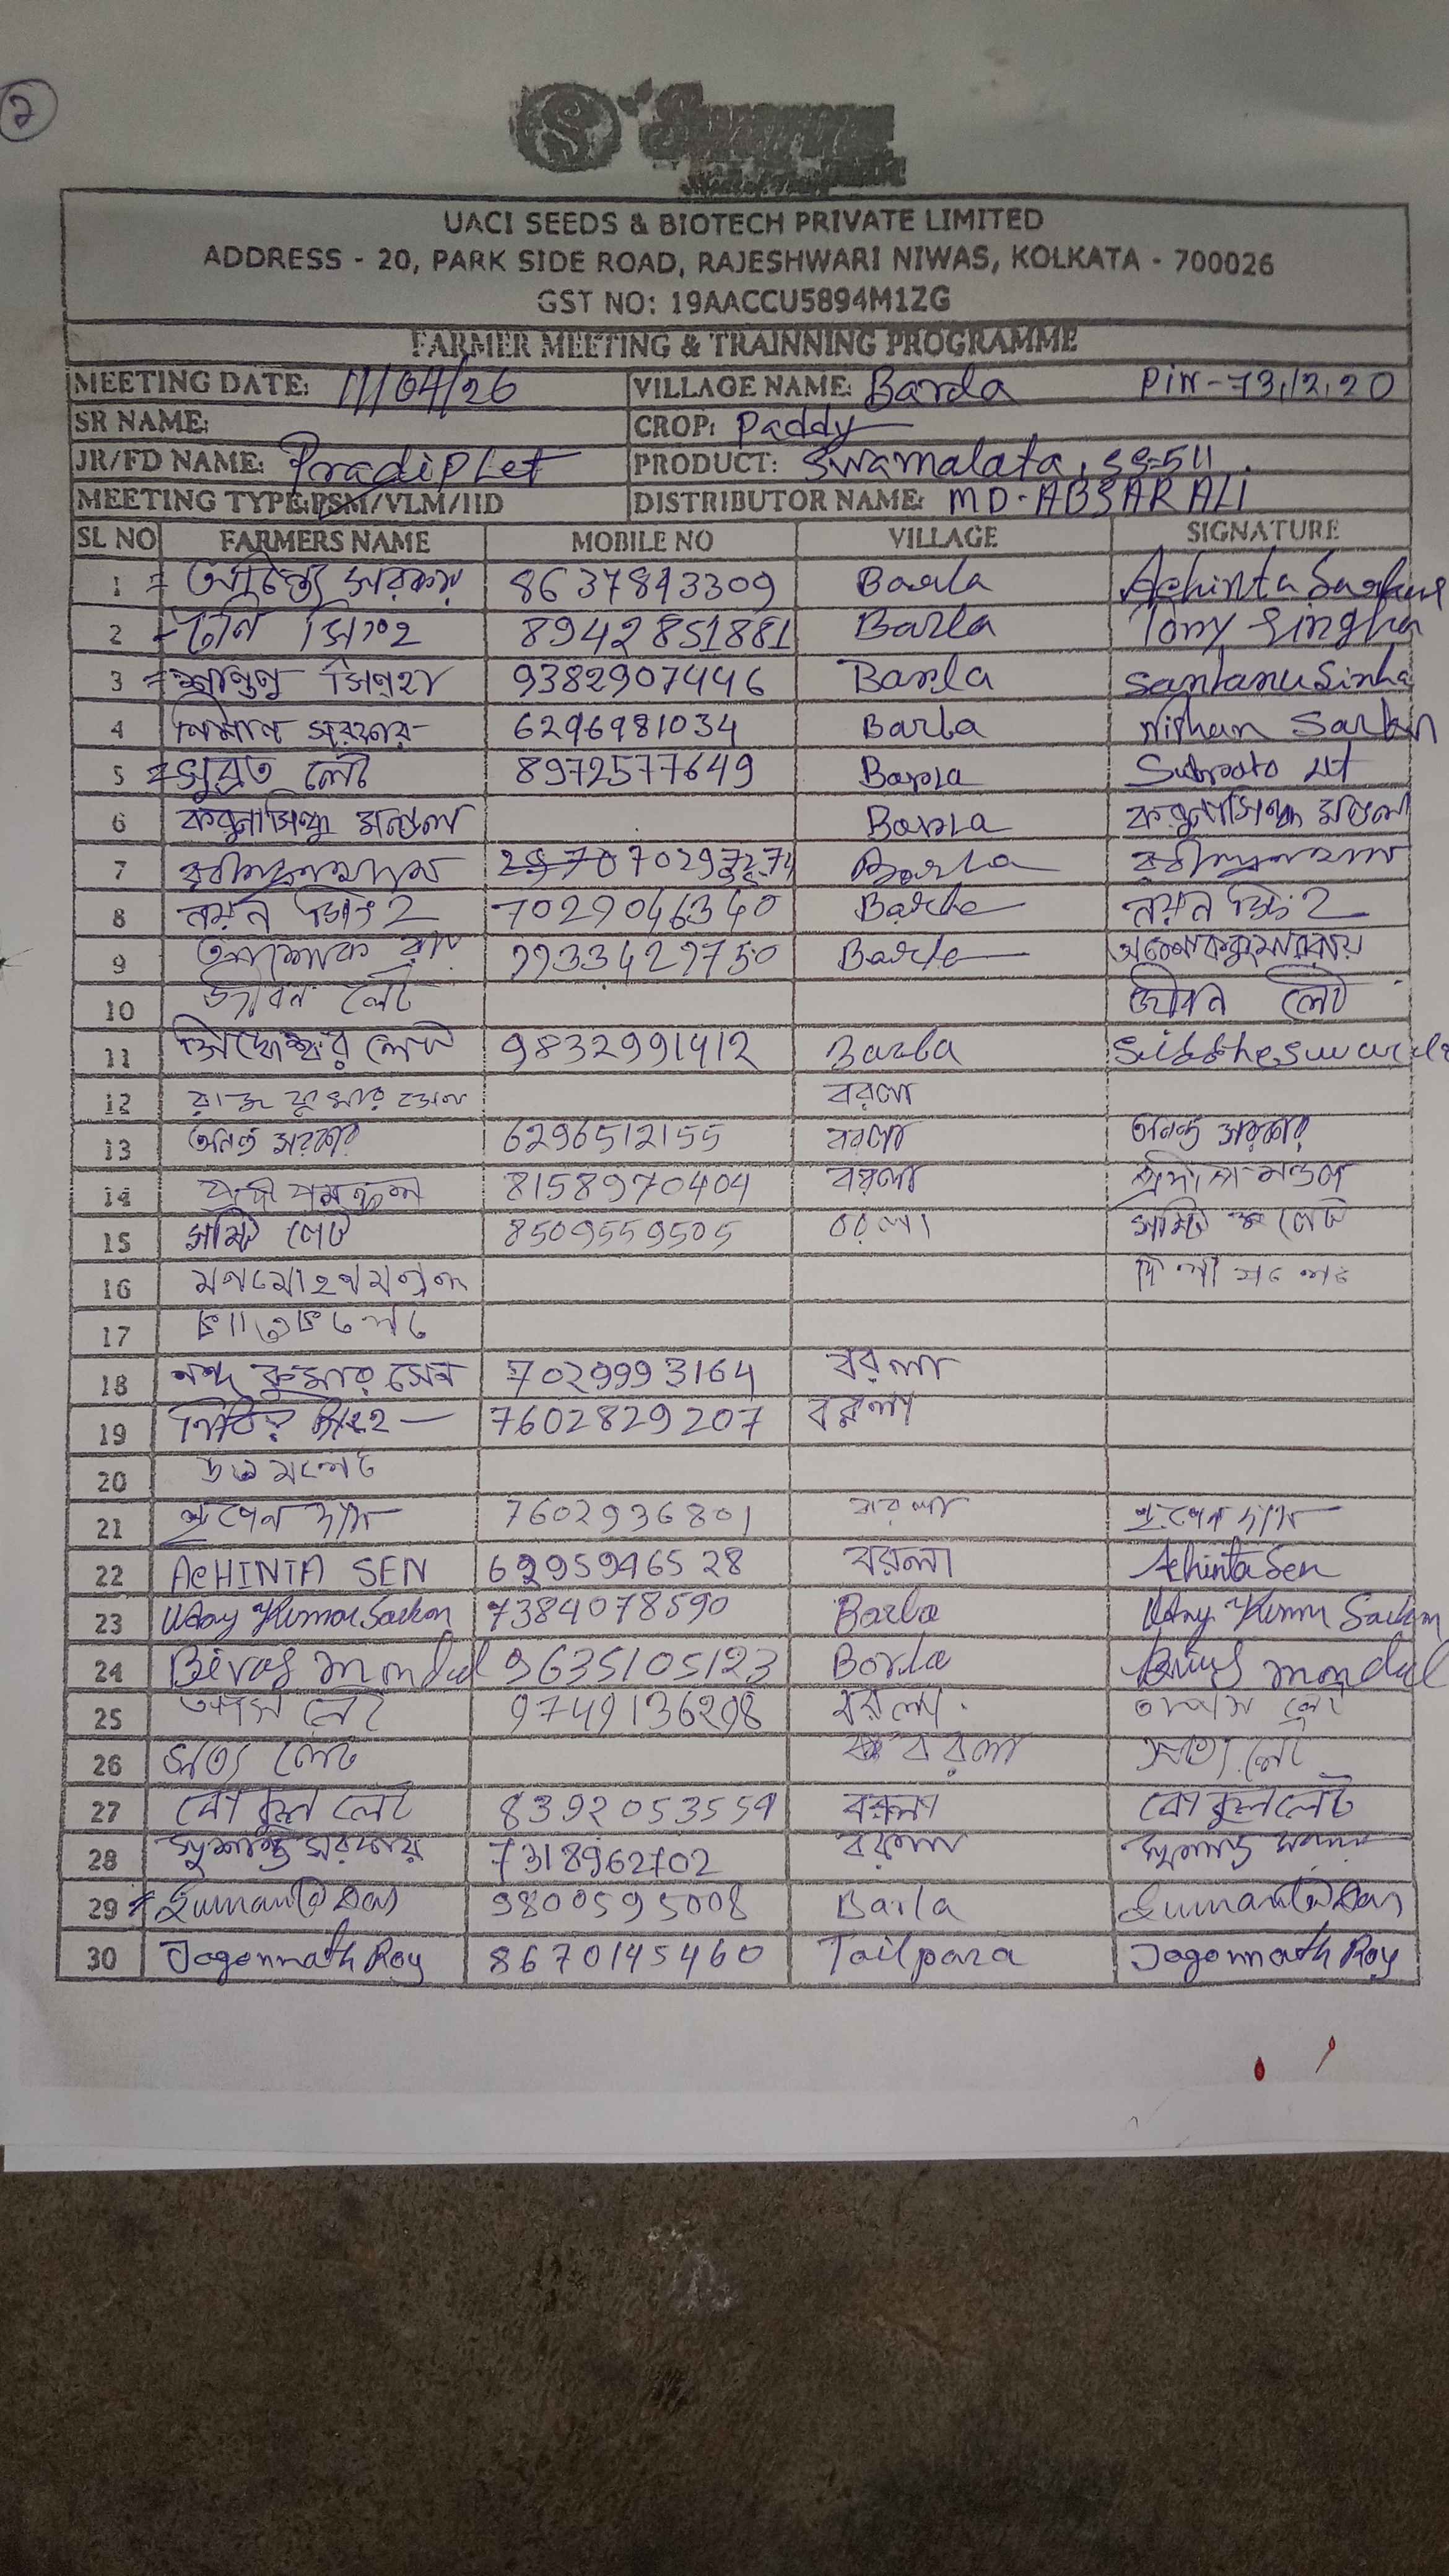 2
UACI SEEDS & BIOTECH PRIVATE LIMITED
ADDRESS - 20, PARK SIDE ROAD, RAJESHWARI NIWAS, KOLKATA - 700026
GST NO: 19AACCU5894M1ZG
FARMER MEETING & TRAINNING PROGRAMME
MEETING DATE: 11/04/26 VILLAGE NAME: Barla PIN-731220
SR NAME: CROP: Paddy
JR/FD NAME: Pradip Let PRODUCT: Swarnalata, SS-511
MEETING TYPE:PSM/VLM/IID DISTRIBUTOR NAME: MD. ABSAR ALI
SL NO FARMERS NAME MOBILE NO VILLAGE SIGNATURE
1 অচিন্ত্য সরকার 8637843309 Barla Achinta Sarkar
2 টনি সিংহ 8942851881 Barla Tony Singha
3 শান্তনু সিনহা 9382907446 Barla Santanu Sinha
4 সরকার 6296981034 Barla Sarkar
5 সুব্রত লেট 8972577649 Barla Subroto Let
6 করুনাসিন্ধু মন্ডল Barla করুনাসিন্ধু মন্ডল
7 Barla
8 নয়ন সিংহ 7029046340 Barla নয়ন সিংহ
9 অশোক রায় 9933429750 Barla অশোককুমার রায়
10 জীবন লেট জীবন লেট
11 সিদ্ধেশ্বর লেট 9832991412 Barla Siddheswar
12 রাজ কুমার সেন বরলা
13 অনন্ত সরকার 6296512155 বরলা অনন্ত সরকার
14 প্রদীপ মন্ডল 8158970404 বরলা প্রদীপ মন্ডল
15 লেট 8509559505 বরলা লেট
16
17
18 নন্দ কুমার সেন 7029993164 বরলা
19 সিংহ 7602829207 বরলা
20 উত্তম লেট
21 দাস 7602936801 বরলা দাস
22 ACHINTA SEN 6295946528 বরলা Achinta Sen
23 Uday Kumar Sarkar 7384078590 Barla Uday Kumar Sarkar
24 Bivas mondal 9635105123 Borla Bivas mondal
25 তাপস লেট 9749136298 বরলা তাপস লেট
26 সত্য লেট বরলা সত্য লেট
27 বোকুল লেট 8392053559 বরলা বোকুল লেট
28 সুশান্ত সরকার 7318962702 বরলা সুশান্ত সরকার
29 Sumanta Das 9800595008 Barla Sumanta Das
30 Jagonnath Roy 8670145460 Tailpara Jagonnath Roy